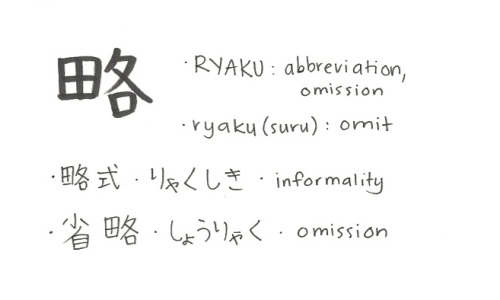 略
・RYAKU: abbreviation,
omission
・ryaku (suru): omit
・略式・りゃくしき・informality
・省略・しょうりゃく・omission